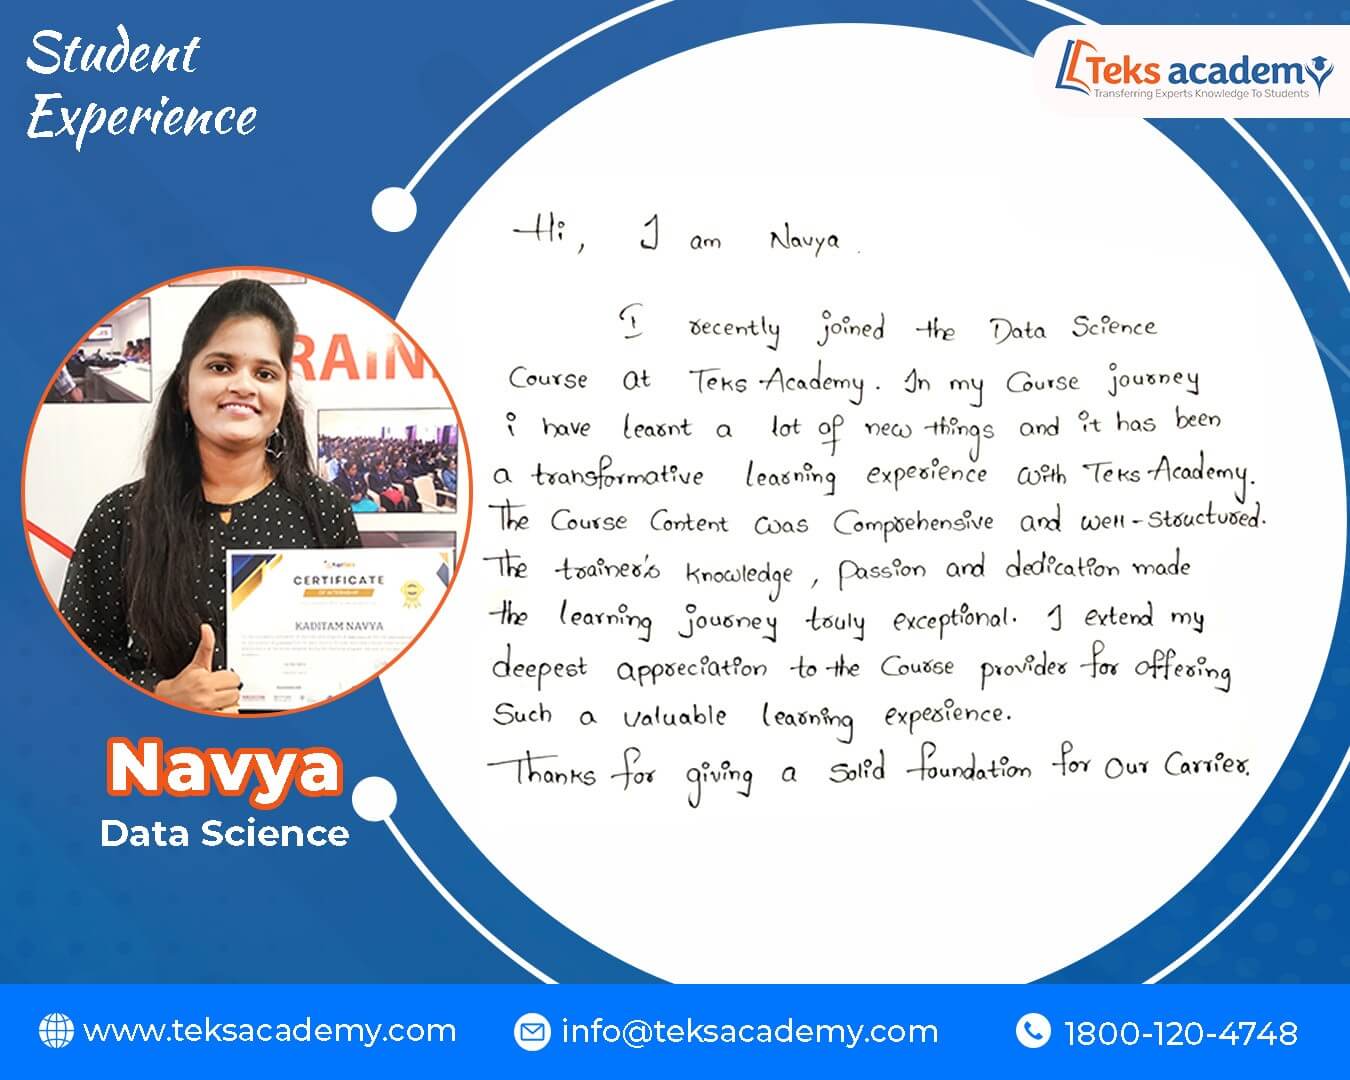 Student
Experience
Teks academy
Transferring Experts Knowledge To Students
Hi, I am Navya.
I recently joined the Data Science
Course at Teks-Academy. In my Course journey
i have learnt a lot of new things and it has been
a transformative learning experience with Teks-Academy.
The Course Content was Comprehensive and well-structured.
The trainer's knowledge, passion and dedication made
the learning journey truly exceptional. I extend my
deepest appreciation to the Course provider for offering
Such a valuable learning experience.
Thanks for giving a solid foundation for our Carrier.
RAIN
CERTIFICATE
OF INTERNSHIP
KADITAM NAVYA
Navya
Data Science
www.teksacademy.com
info@teksacademy.com
1800-120-4748